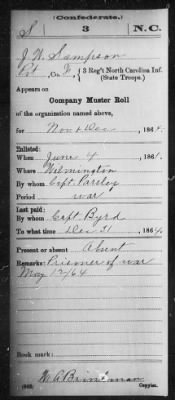 (Confederate.)
S 3 N.C.
J. W. Sampson
Pvt, Co. F, 3 Reg't North Carolina Inf.
(State Troops.)
Appears on
Company Muster Roll
of the organization named above,
for Nov & Dec, 1864.
Enlisted:
When June 4, 1861.
Where Wilmington
By whom Capt. Parsley
Period war
Last paid:
By whom Capt. Byrd
To what time Dec 31, 1864
Present or absent Absent
Remarks: Prisoner of war
May 12/64
Book mark:
Copyist.